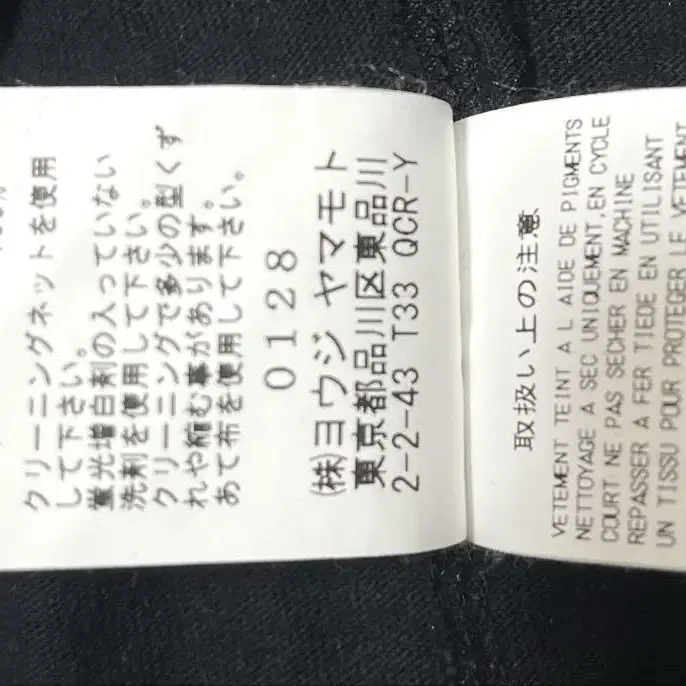 クリーニングネットを使用
して下さい。
蛍光増白剤の入っていない
洗剤を使用して下さい。
クリーニングで多少の型くず
れや縮む事があります。
あて布を使用して下さい。
0128
(株)ヨウジ ヤマモト
東京都品川区東品川
2-2-43 T33 QCR-Y
取扱い上の注意
VETEMENT TEINT A L AIDE DE PIGMENTS
NETTOYAGE A SEC UNIQUEMENT,EN CYCLE
COURT NE PAS SECHER EN MACHINE
REPASSER A FER TIEDE EN UTILISANT
UN TISSU POUR PROTEGER LE VETEMENT